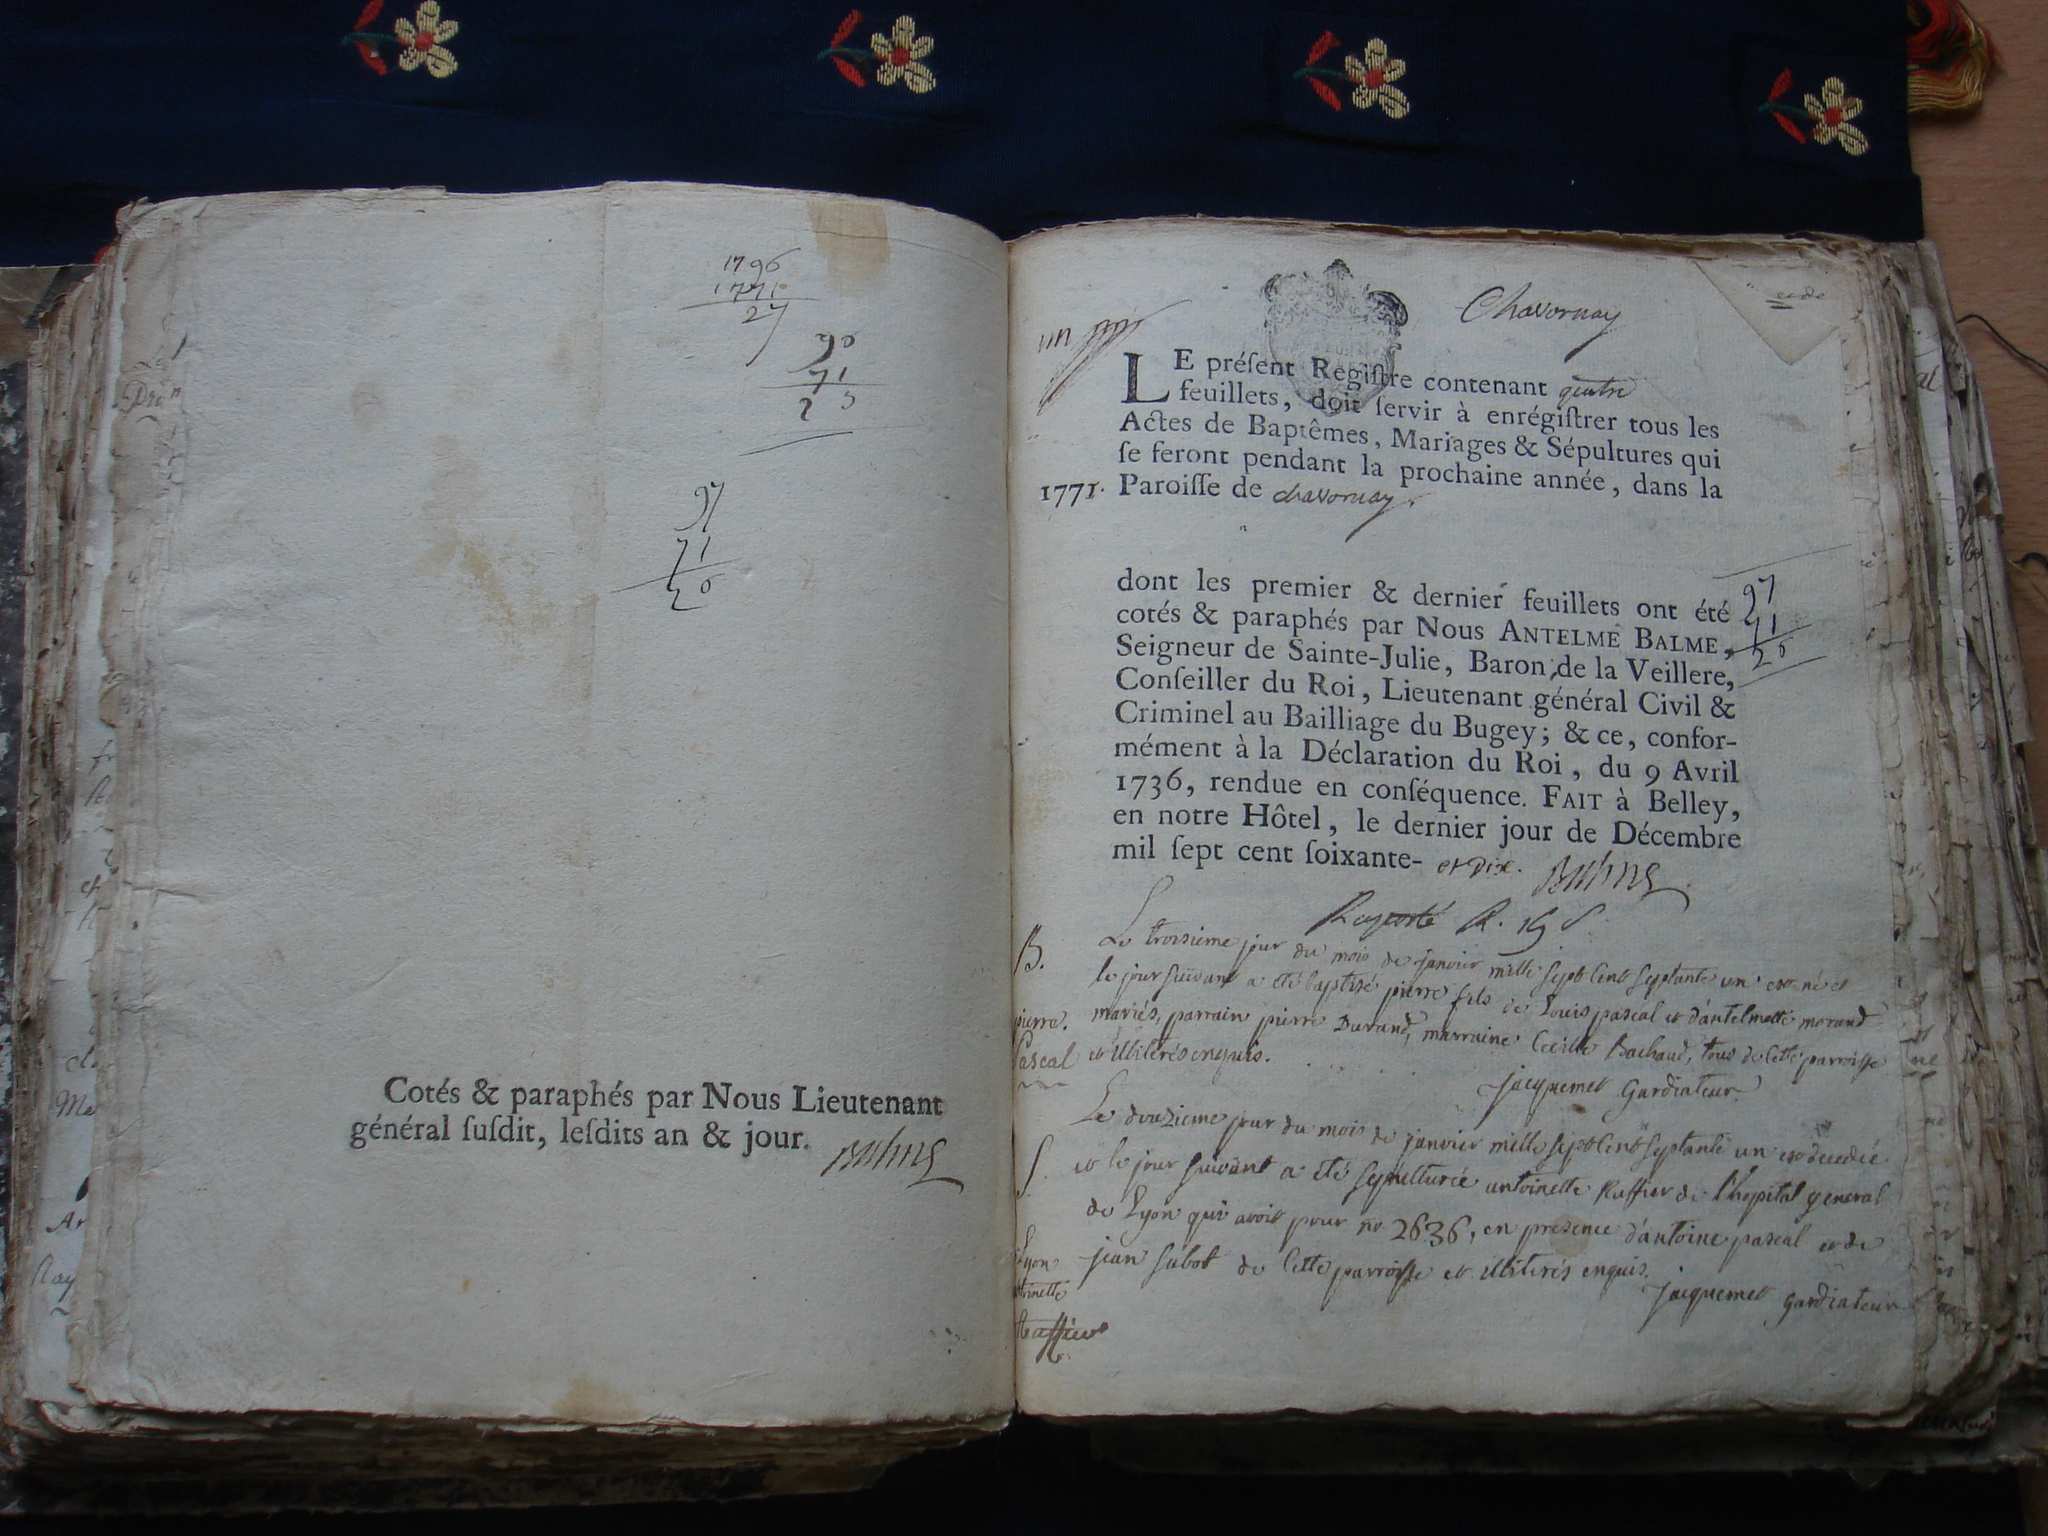 1796
1771
27
90
71
97
71
26
Cotés & paraphés par Nous Lieutenant
général ſuſdit, leſdits an & jour.
Chavornay
un
LE préſent Regiſtre contenant quatre
feuillets, doit ſervir à enrégiſtrer tous les
Actes de Baptêmes, Mariages & Sépultures qui
ſe feront pendant la prochaine année, dans la
1771. Paroiſſe de chavornay.
dont les premier & dernier feuillets ont été
cotés & paraphés par Nous ANTELME BALME,
Seigneur de Sainte-Julie, Baron de la Veillere,
Conſeiller du Roi, Lieutenant général Civil &
Criminel au Bailliage du Bugey; & ce, confor-
mément à la Déclaration du Roi, du 9 Avril
1736, rendue en conſéquence. FAIT à Belley,
en notre Hôtel, le dernier jour de Décembre
mil ſept cent ſoixante- et dix.
97
71
26
B.
pierre
Pascal
Le troisieme jour du mois de janvier mille sept cent septante un est né et
le jour suivant a été baptisé pierre fils de Louis pascal et d'antelmette morand
mariés, parrain pierre Durand, marraine Cecille Bachaud, tous de cette parroisse
et illiterés enquis.
jacquemet Gardiateur
S.
Lyon
Le douzieme jour du mois de janvier mille sept cent septante un est decedée
et le jour suivant a été sepulturée antoinette Ruffier de l'hopital general
de Lyon qui avoit pour no 2636, en presence d'antoine pascal et de
jean subot de cette parroisse et illiterés enquis.
jacquemet gardiateur